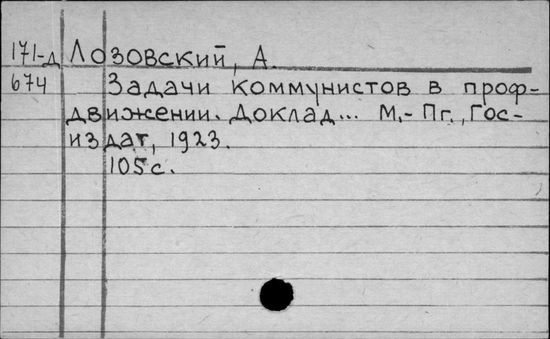 171-д Лозовский, А.
674 Задачи коммунистов в проф-
движении. Доклад... М.-Пг., Гос-
издат, 1923.
105с.